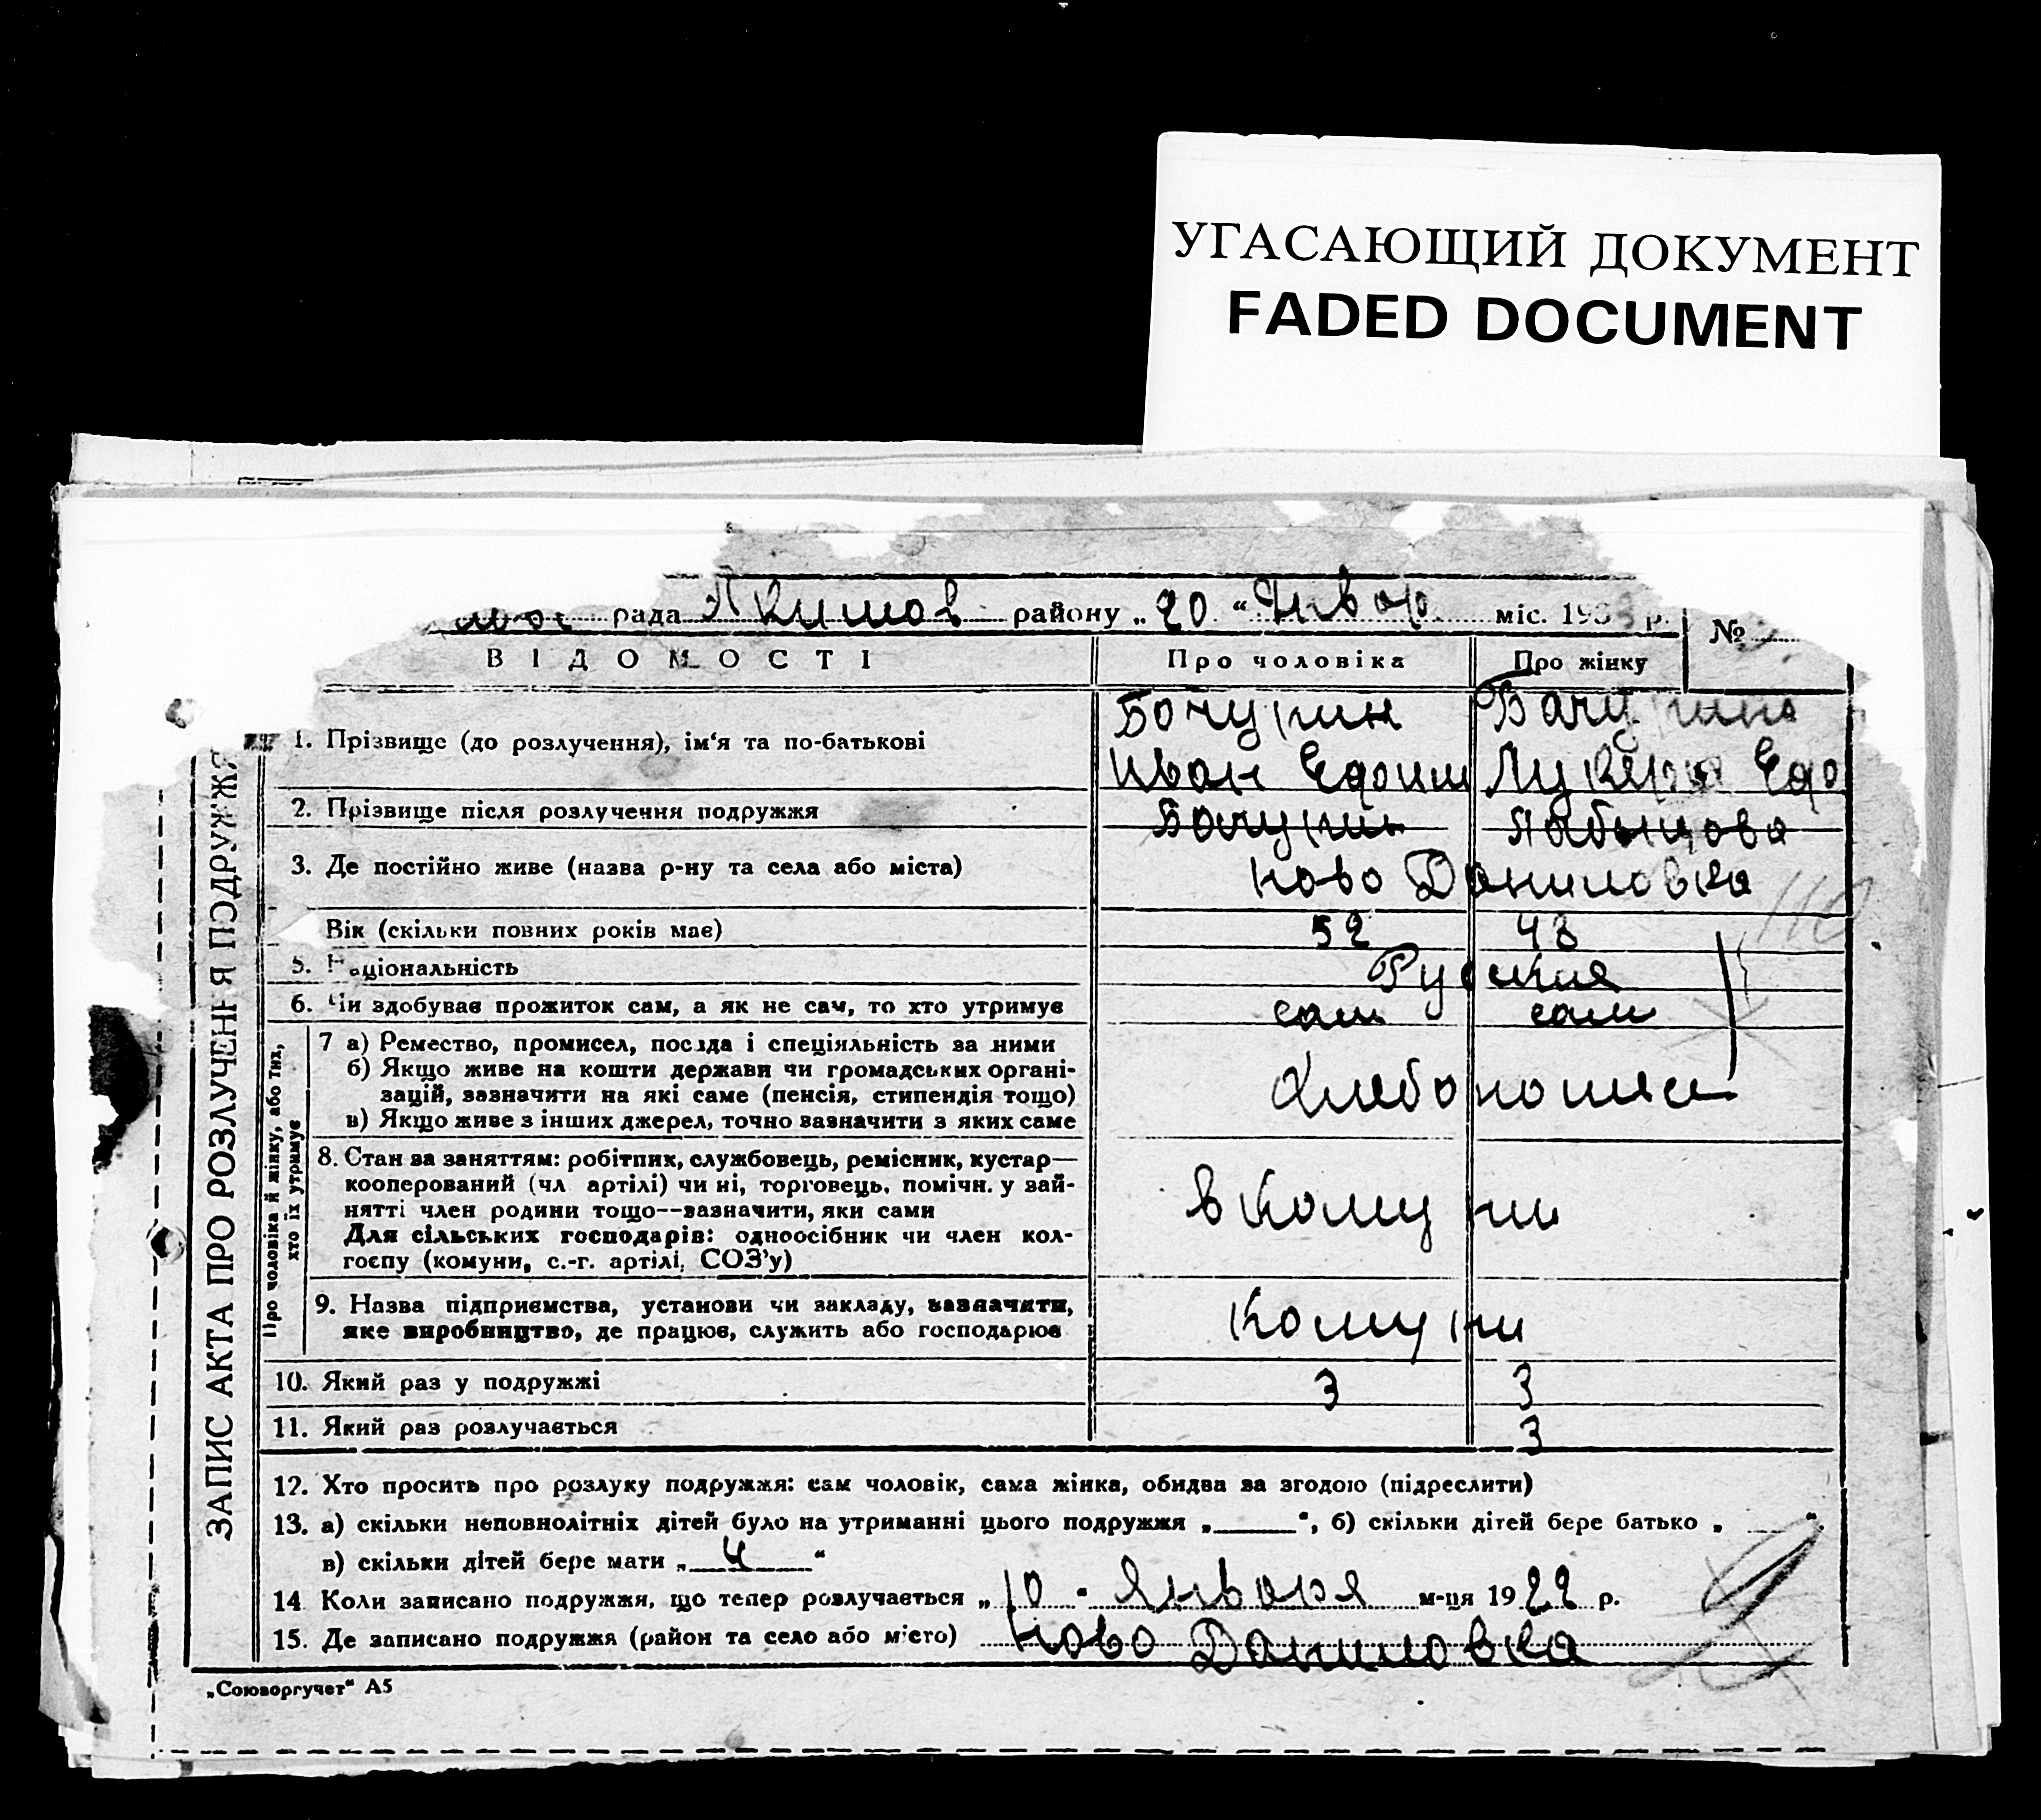 УГАСАЮЩИЙ ДОКУМЕНТ
FADED DOCUMENT
рада Якимов району „20 “ Январ міс. 1933 р. №
ВІДОМОСТІ Про чоловіка Про жінку
1. Прізвище (до розлучення), ім‘я та по-батькові Бочурин Бачурина
Иван Ефим Лукерия Ефр
2. Прізвище після розлучення подружжя Бочурин
3. Де постійно живе (назва р-ну та села або міста) Ново Даниловка
110
Вік (скільки повних років має) 52 43
5. Національність Руския
6. Чи здобував прожиток сам, а як не сам, то хто утримує сам сам
7 а) Ремество, промисел, посада і спеціяльність за ними
б) Якщо живе на кошти держави чи громадських органі-
зацій, зазначити на які саме (пенсія, стипендія тощо)
в) Якщо живе з інших джерел, точно зазначити з яких саме
8. Стан за заняттям: робітник, службовець, ремісник, кустар—
кооперований (чл артілі) чи ні, торговець, помічн. у зай-
нятті член родини тощо--зазначити, яки сами
Для сільських господарів: одноосібник чи член кол-
госпу (комуни, с.-г. артілі, СОЗ’у)
в Комуни
9. Назва підприємства, установи чи закладу, зазначити,
яке виробництво, де працює, служить або господарює
Комуни
10. Який раз у подружжі 3 3
11. Який раз розлучається 3
12. Хто просить про розлуку подружжя: сам чоловік, сама жінка, обидва за згодою (підреслити)
13. а) скільки неповнолітніх дітей було на утриманні цього подружжя „ “, б) скільки дітей бере батько „ “.
в) скільки дітей бере мати „ 4 “
14 Коли записано подружжя, що тепер розлучається „ 10 “ Января м-ця 1922 р.
15. Де записано подружжя (район та село або місто) Ново Даниловка
„Союзоргучет“ А5
ЗАПИС АКТА ПРО РОЗЛУЧЕННЯ ПОДРУЖЖЯ
Про чоловіка й жінку, або тих,
хто їх утримує